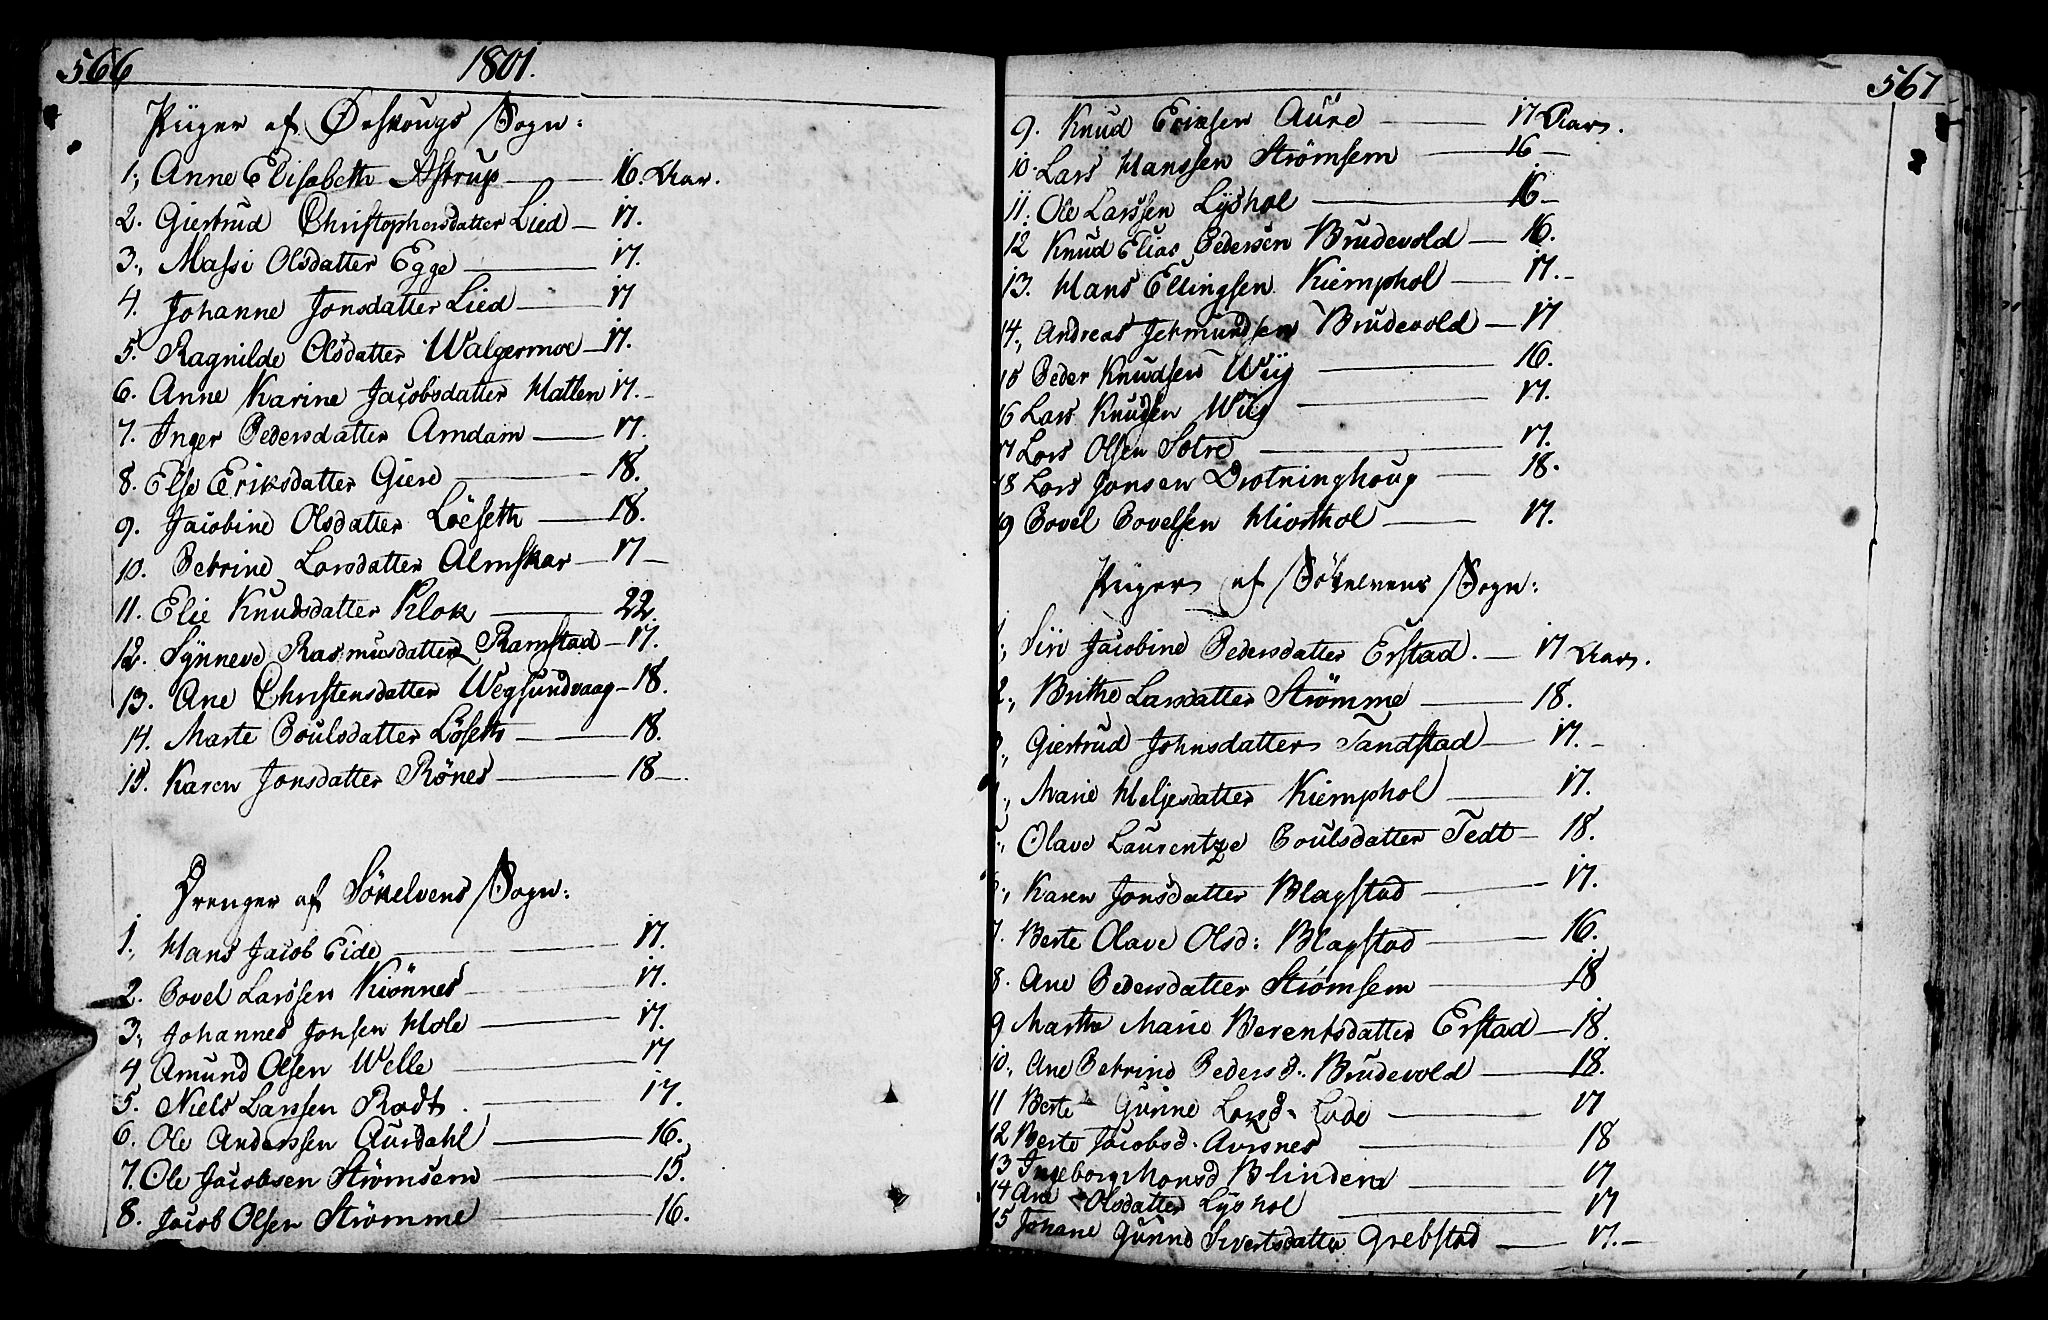 566
1801.
Piiger af Ørskougs Sogn:
1., Anne Elisabeth Astrup — 16. Aar.
2. Giertrud Christophersdatter Lied — 17.
3., Massi Olsdatter Egge — 17.
4. Johanne Jonsdatter Lied — 17
5. Ragnilde Olsdatter Walgermoe — 17.
6. Anne Karine Jacobsdatter Hatlen 17. —
7. Inger Pedersdatter Amdam — 17.
8. Else Eriksdatter Giere — 18.
9. Jacobine Olsdatter Löeseth — 18.
10. Petrine Larsdatter Almskar — 17 —
11. Elie Knudsdatter Klok — 22.
12. Synneve Rasmusdatter Ramstad — 17.
13. Ane Christensdatter Wegsundvaag — 18.
14. Marte Poulsdatter Löseth — 18.
15. Karen Jonsdatter Rönes — 18 —
Drenger af Sökelvens Sogn:
1., Hans Jacob Eide — 17.
2. Povel Larssen Kiönnes — 17.
3., Johannes Jonsen Hole — 17.
4 Amund Olsen Welle — 17
5. Niels Larssen Rodt. — 17.
6. Ole Anderssen Aursdahl — 16.
7. Ole Jacobsen Strømsem — 15.
8. Jacob Olsen Strømme — 16.
567
9. Knud Eriksen Aure — 17 Aar.
10. Lars Hanssen Strømsem — 16 —
11. Ole Larssen Lyshol — 16 —
12 Knud Elias Pedersen Brudevold — 16.
13. Hans Ellingsen Kiemphol — 17. —
14., Andreas Jetmundsen Brudevold — 17
15 Peder Knudsen Wiig — 16.
16 Lars Knudsen Wiig — 17.
17 Lars Olsen Sætre — 17.
18 Lars Jonsen Drotninghoug — 18.
19 Povel Povelsen Hiorthol — 17.
Piiger af Sökelvens Sogn:
1., Siri Jacobine Pedersdatter Erstad. — 17 Aar.
2., Brithe Larsdatter Strømme — 18.
3., Giertrud Johnsdatter Tandstad — 17. —
4., Marie Heljesdatter Kiemphol — 17.
5., Olave Laurentze Poulsdatter Tedt — 18.
6., Karen Jonsdatter Blagstad — 17.
7. Berte Olave Olsd: Blagstad — 16.
8. Ane Pedersdatter Strømsem — 18
9 Marthe Marie Berentsdatter Erstad — 18.
10., Ane Petrine Peders d.. Brudevold — 18.
11 Berte Gurine Larsd. Lade — 17
12 Berte Jacobsd. Aursnes — 18
13 Ingeborg Monsd Blindem — 17
14 Ane Olsdatter Lyshol — 17
15 Johane Gurine Sivertsdatter Grebstad — 17. —